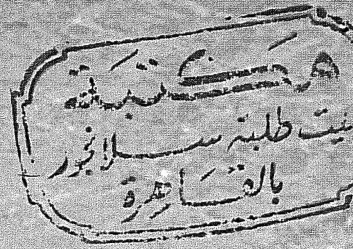 مكتبة
بيت طلبة سلانجور
بالقاهرة